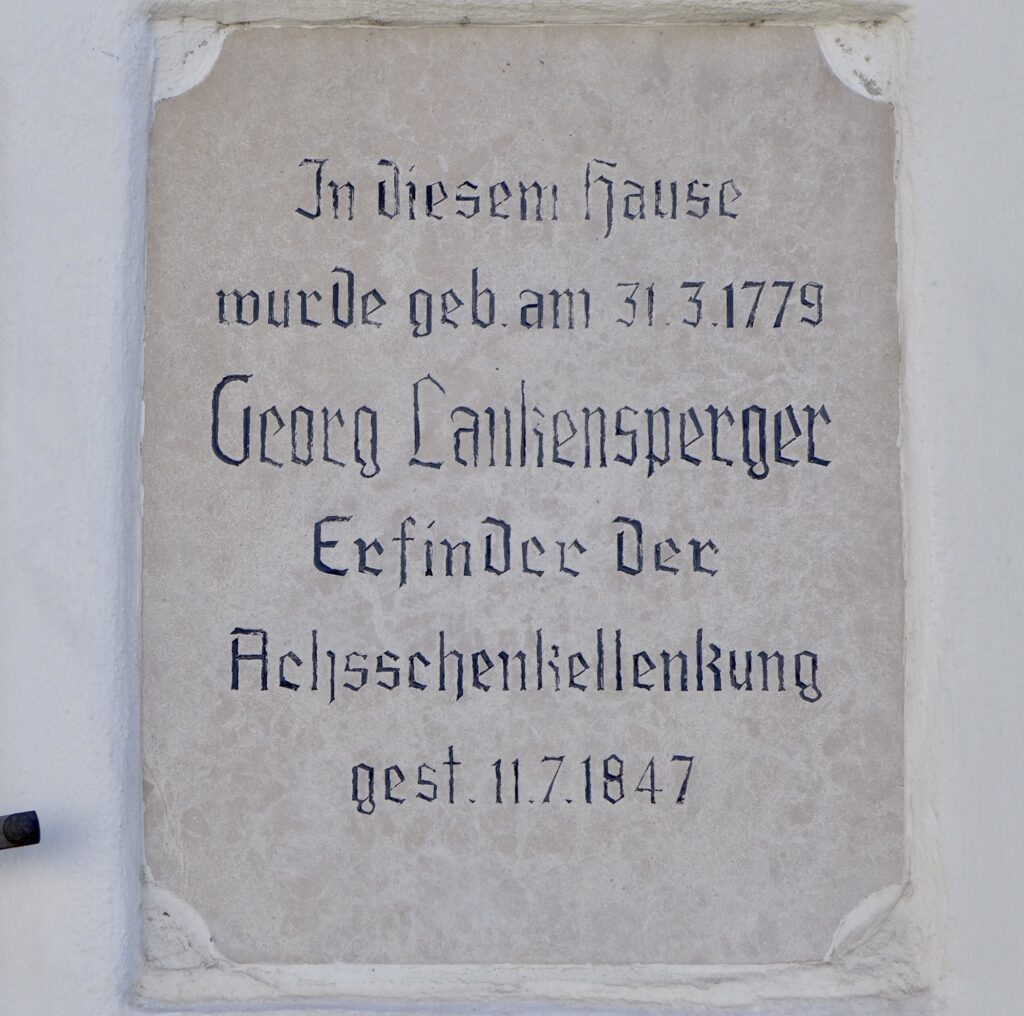 In diesem Hause
wurde geb. am 31.3.1779
Georg Lankensperger
Erfinder der
Achsschenkellenkung
gest. 11.7.1847